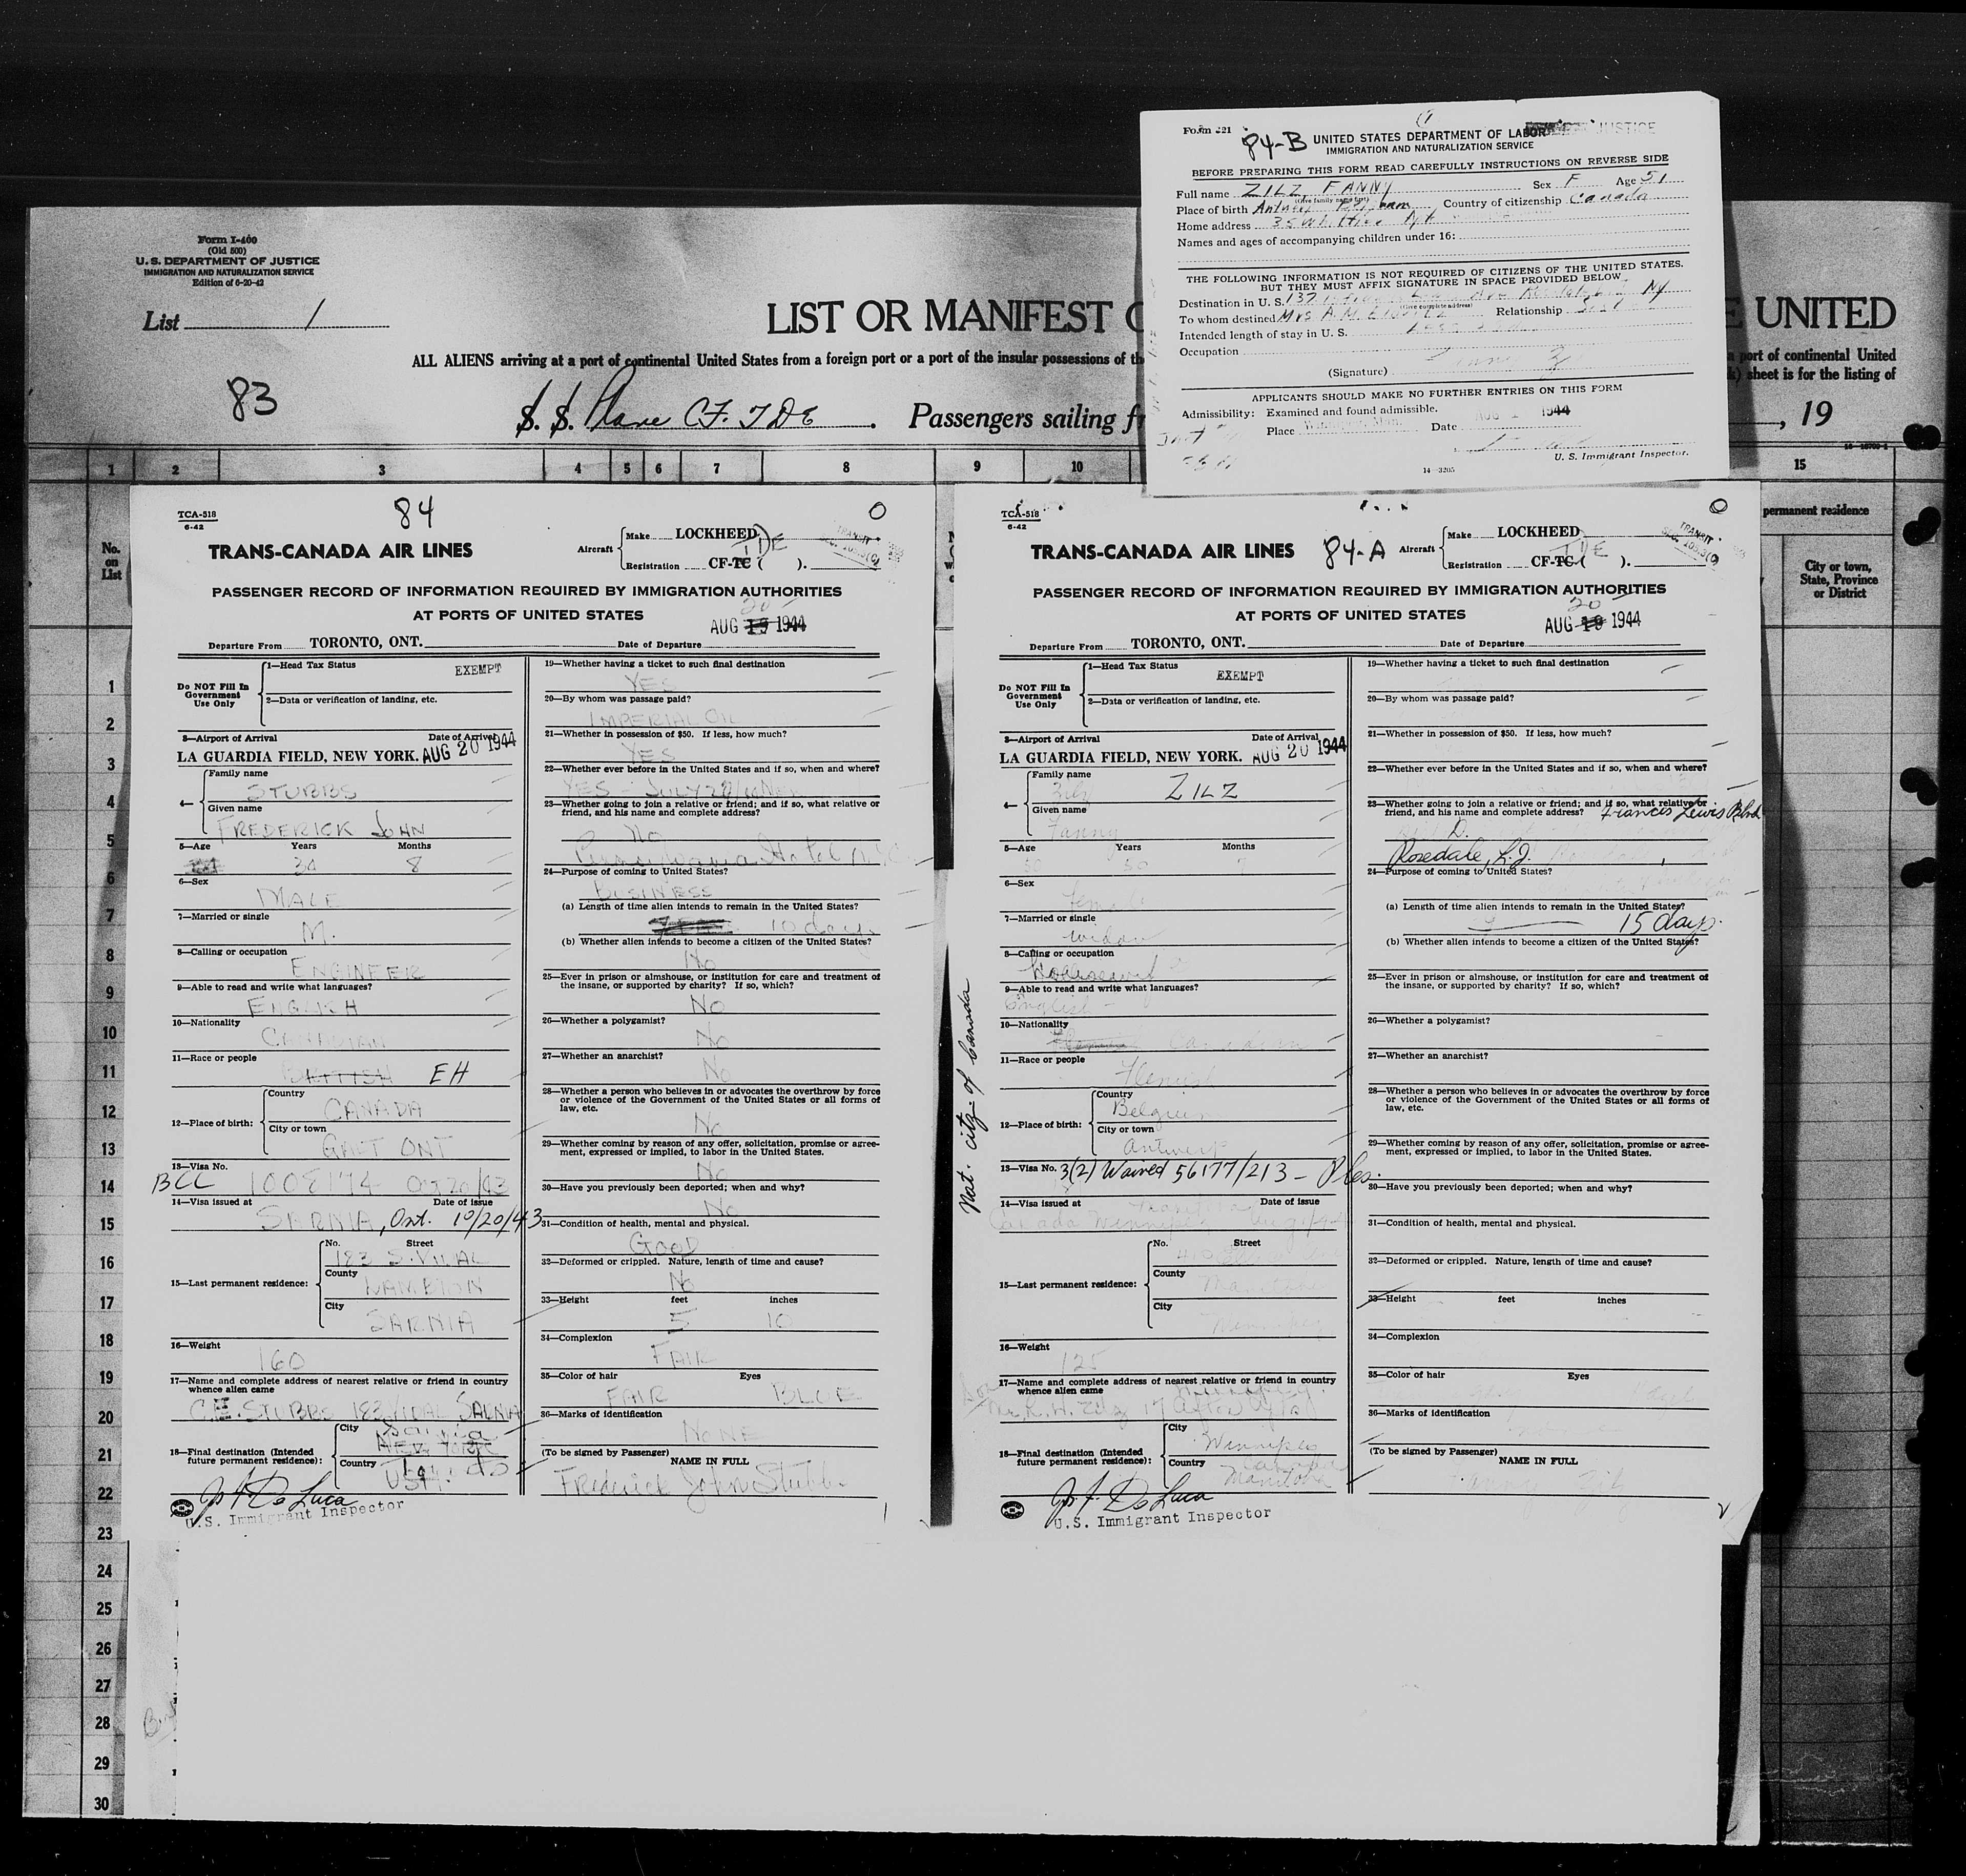 Form I-400
(Old 500)
U. S. DEPARTMENT OF JUSTICE
IMMIGRATION AND NATURALIZATION SERVICE
Edition of 6-20-42
List 1
LIST OR MANIFEST
E UNITED
ALL ALIENS arriving at a port of continental United States from a foreign port or a port of the insular possessions of th
a port of continental United
sheet is for the listing of
83
S. S. Plane CF. TDE . Passengers sailing fr
, 19
1 2 3 4 5 6 7 8 9 10 15
No. on List
permanent residence
City or town, State, Province or District
Form 221
84-B UNITED STATES DEPARTMENT OF LABOR JUSTICE
IMMIGRATION AND NATURALIZATION SERVICE
BEFORE PREPARING THIS FORM READ CAREFULLY INSTRUCTIONS ON REVERSE SIDE
Full name ZILZ, FANNY Sex F Age 51
(Give family name first)
Place of birth Country of citizenship Canada
Home address
Names and ages of accompanying children under 16:
THE FOLLOWING INFORMATION IS NOT REQUIRED OF CITIZENS OF THE UNITED STATES.
BUT THEY MUST AFFIX SIGNATURE IN SPACE PROVIDED BELOW
Destination in U. S. 137 NY
(Give complete address)
To whom destined Mrs A. M. Relationship
Intended length of stay in U. S.
Occupation
(Signature)
APPLICANTS SHOULD MAKE NO FURTHER ENTRIES ON THIS FORM
Admissibility: Examined and found admissible. AUG 1 1944
Place Date
U. S. Immigrant Inspector.
14-3205
TCA-518
6-42
84
O
TRANS-CANADA AIR LINES
Aircraft Make LOCKHEED
Registration CF-TC ( ). TDE
TRANSIT
PASSENGER RECORD OF INFORMATION REQUIRED BY IMMIGRATION AUTHORITIES
AT PORTS OF UNITED STATES
20
AUG 19 1944
Departure From TORONTO, ONT. Date of Departure
Do NOT Fill In Government Use Only
1—Head Tax Status EXEMPT
2—Data or verification of landing, etc.
3—Airport of Arrival Date of Arrival
LA GUARDIA FIELD, NEW YORK. AUG 20 1944
4— Family name
STUBBS
Given name
FREDERICK JOHN
5—Age Years Months
34 8
6—Sex
MALE
7—Married or single
M.
8—Calling or occupation
ENGINEER
9—Able to read and write what languages?
ENGLISH
10—Nationality
CANADIAN
11—Race or people
BRITISH EH
12—Place of birth: Country
CANADA
City or town
GALT ONT
13—Visa No.
BCC 1008174 Oct 20/43
14—Visa issued at Date of issue
SARNIA, Ont. 10/20/43
15—Last permanent residence: No. Street
183 S. VIDAL
County
LAMBTON
City
SARNIA
16—Weight
160
17—Name and complete address of nearest relative or friend in country whence alien came
STUBBS 183 VIDAL SARNIA
18—Final destination (Intended future permanent residence): City
Sarnia
NEW YORK
Country
USA.
U.S. Immigrant Inspector
19—Whether having a ticket to such final destination
YES
20—By whom was passage paid?
IMPERIAL OIL
21—Whether in possession of $50. If less, how much?
YES
22—Whether ever before in the United States and if so, when and where?
YES - JULY
23—Whether going to join a relative or friend; and if so, what relative or friend, and his name and complete address?
No
Pennsylvania Hotel
24—Purpose of coming to United States?
BUSINESS
(a) Length of time alien intends to remain in the United States?
10 days
(b) Whether alien intends to become a citizen of the United States?
No
25—Ever in prison or almshouse, or institution for care and treatment of the insane, or supported by charity? If so, which?
No
26—Whether a polygamist?
No
27—Whether an anarchist?
No
28—Whether a person who believes in or advocates the overthrow by force or violence of the Government of the United States or all forms of law, etc.
No
29—Whether coming by reason of any offer, solicitation, promise or agreement, expressed or implied, to labor in the United States.
No
30—Have you previously been deported; when and why?
No
31—Condition of health, mental and physical.
GOOD
32—Deformed or crippled. Nature, length of time and cause?
No
33—Height feet inches
5 10
34—Complexion
FAIR
35—Color of hair Eyes
FAIR BLUE
36—Marks of identification
NONE
(To be signed by Passenger) NAME IN FULL
Frederick John Stubbs
TCA-518
6-42
O
TRANS-CANADA AIR LINES 84-A
Aircraft Make LOCKHEED
Registration CF-TC ( ). TDE
TRANSIT
PASSENGER RECORD OF INFORMATION REQUIRED BY IMMIGRATION AUTHORITIES
AT PORTS OF UNITED STATES
20
AUG 19 1944
Departure From TORONTO, ONT. Date of Departure
Do NOT Fill In Government Use Only
1—Head Tax Status EXEMPT
2—Data or verification of landing, etc.
3—Airport of Arrival Date of Arrival
LA GUARDIA FIELD, NEW YORK. AUG 20 1944
4— Family name
Zilz ZILZ
Given name
Fanny
5—Age Years Months
50 7
6—Sex
female
7—Married or single
widow
8—Calling or occupation
Housewife
9—Able to read and write what languages?
English
10—Nationality
Canadian
11—Race or people
Flemish
12—Place of birth: Country
Belgium
City or town
Antwerp
Nat. citz of Canada
13—Visa No. 3(2) Waived 56177/213 -
14—Visa issued at Date of issue
Canada Winnipeg
15—Last permanent residence: No. Street
County
Manitoba
City
Winnipeg
16—Weight
125
17—Name and complete address of nearest relative or friend in country whence alien came
18—Final destination (Intended future permanent residence): City
Winnipeg
Country
Canada
Manitoba
U.S. Immigrant Inspector
19—Whether having a ticket to such final destination
20—By whom was passage paid?
21—Whether in possession of $50. If less, how much?
22—Whether ever before in the United States and if so, when and where?
23—Whether going to join a relative or friend; and if so, what relative or friend, and his name and complete address? Francis Lewis Blvd
Rosedale, L.I.
24—Purpose of coming to United States?
(a) Length of time alien intends to remain in the United States?
15 days.
(b) Whether alien intends to become a citizen of the United States?
25—Ever in prison or almshouse, or institution for care and treatment of the insane, or supported by charity? If so, which?
26—Whether a polygamist?
27—Whether an anarchist?
28—Whether a person who believes in or advocates the overthrow by force or violence of the Government of the United States or all forms of law, etc.
29—Whether coming by reason of any offer, solicitation, promise or agreement, expressed or implied, to labor in the United States.
30—Have you previously been deported; when and why?
31—Condition of health, mental and physical.
32—Deformed or crippled. Nature, length of time and cause?
33—Height feet inches
34—Complexion
35—Color of hair Eyes
36—Marks of identification
(To be signed by Passenger) NAME IN FULL
1
2
3
4
5
6
7
8
9
10
11
12
13
14
15
16
17
18
19
20
21
22
23
24
25
26
27
28
29
30